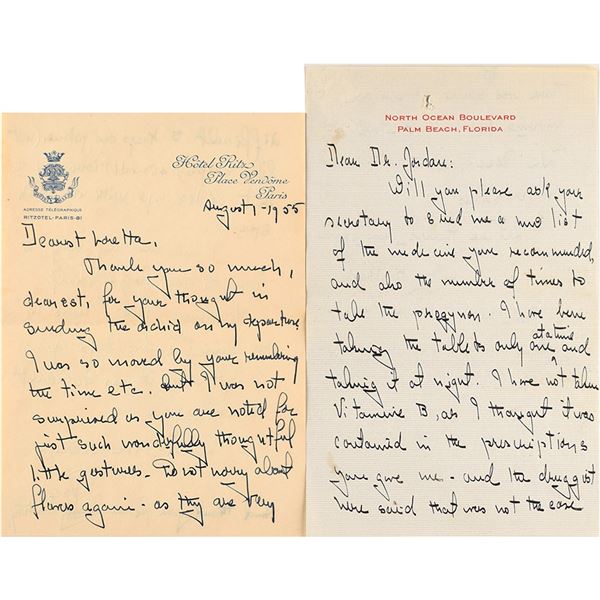 ADRESSE TÉLÉGRAPHIQUE
RITZOTEL-PARIS-81
Hôtel Ritz
Place Vendôme
Paris
August 1-1955
Dearest Loretta,
Thank you so much,
dearest, for your thought in
sending the orchid on my departure
I was so moved by your remembering
the time etc. But I was not
surprised as you are noted for
just such wonderfully thoughtful
little gestures - Do not worry about
again - as they are very
NORTH OCEAN BOULEVARD
PALM BEACH, FLORIDA
Dear Dr. Jordan:
Will you please ask your
secretary to send me a list
of the medicine you recommended,
and also the number of times to
take the progynon. I have been
taking the tablets only one at a time and
taking it at night. I have not taken
Vitamine B, as I thought it was
contained in the prescriptions
you gave me - and the druggist
here said that was not the case